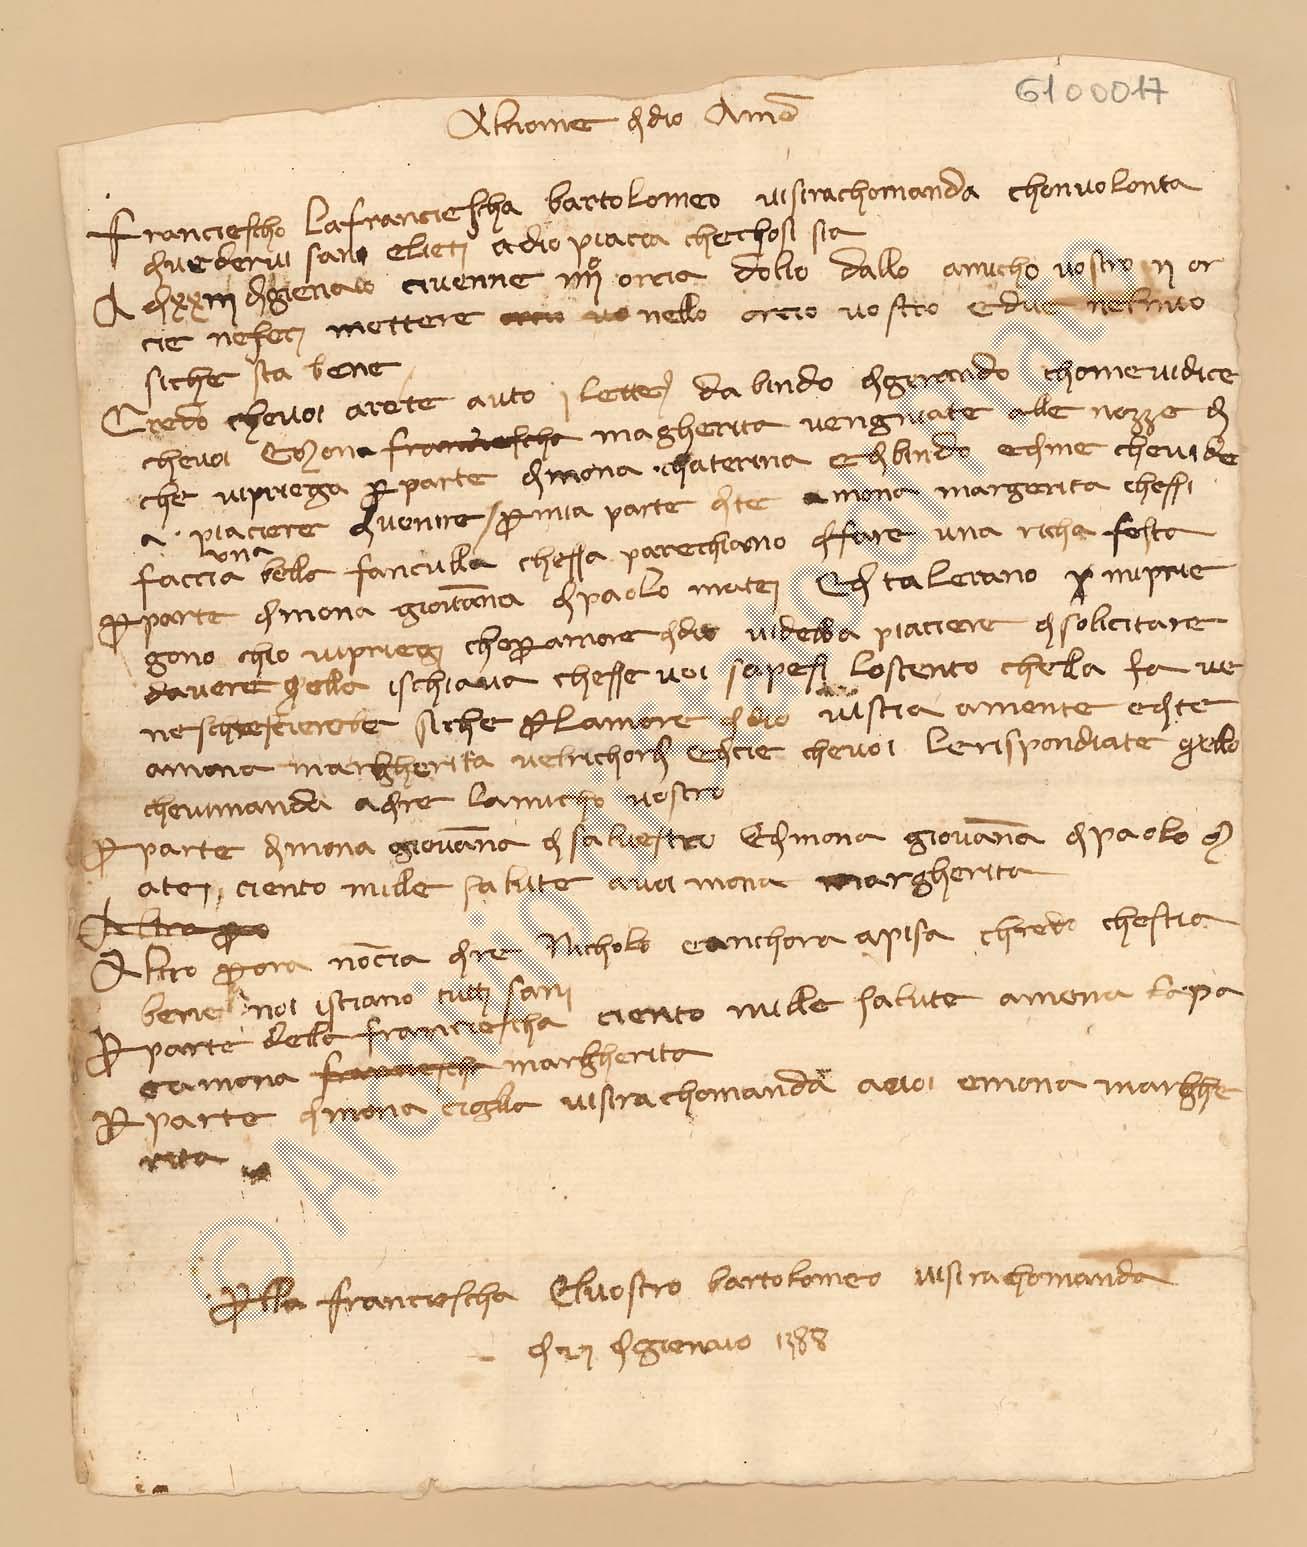 6100017
Al nome di dio Amē
Franciescho La franciescha bartolomeo vi si rachomanda chon volonta
di vedervi sano e lieti a dio piacia che chosi sia
A di xxiii di gienaio ci venne iiii° orcia dolio dallo amicho vostro ii or
cie ne feci mettere nello orcio vostro e due nel mio
siche sta bene
Credo che voi arete auto i lettera da bindo di gherardo chome vi dice
che voi e mona franciescha magherita vengniate alle nozze di
che vi priega p parte di mona chaterina e di bindo e di me che vi de
a piaciere di venire / p mia parte dite a mona margerita che ssi
faccia una bella fanculla che ssa parechiano di fare una richa festa
p parte di mona giovāna di paolo matei e di talerano mi prie
gono chio vi prieghi che p amore di dio vi debba piaciere di solicitare
davere qella ischiava che sse voi sapesi lo stento chella fa ve
ne siche p lamore di dio vi stia a mente e dite
a mona margherita vel richordi e dicie che voi le rispondiate qello
che vi manda a dire lamicho vostro
p parte di mona giovāna di salvestro e di mona giovāna di paolo m
atei ciento mille salute a voi mona margherita
Altro p
Altro p ora nō cia di re Nicholo e anchora a pisa chredo che stia
bene noi istiano tutti sani
p parte della franciescha ciento mille salute a mona lapa
e a mona franciescha margherita
p parte di mona ciglla vi si rachomanda a voi e mona marghe
rita
p lla franciescha El vostro bartolomeo vi si rachomanda
di 27 di gienaio 1388
© Archivio di Stato di Prato